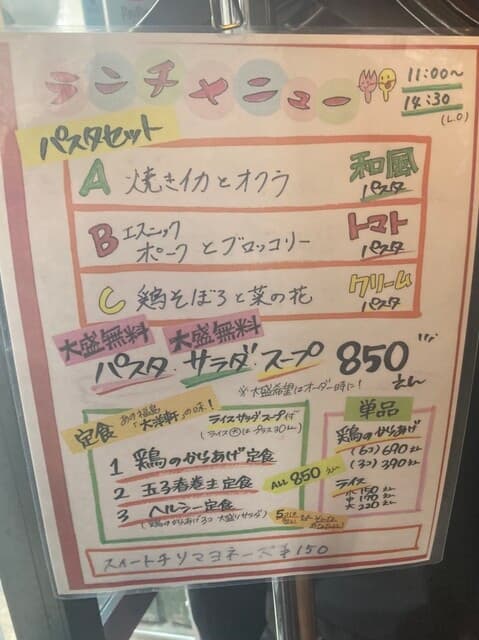 ランチメニュー
11:00〜
14:30
(L.O)
パスタセット
A 焼きイカとオクラ 和風パスタ
B エスニックポークとブロッコリー トマトパスタ
C 鶏そぼろと菜の花 クリームパスタ
大盛無料 大盛無料
パスタ・サラダ・スープ 850えん
※大盛希望はオーダー時に!
定食 あの福島「大洋軒」の味!
ライスサラダスープ付
(ライス大はプラス30えん)
1 鶏のからあげ定食
2 玉子春巻き定食
3 ヘルシー定食
(鶏のからあげ3コ 大盛りサラダ)
ALL 850えん
単品
鶏のからあげ
(6コ)690えん
(3コ)390えん
ライス
小150えん
中170えん
大220えん
スイートチリマヨネーズ ¥150